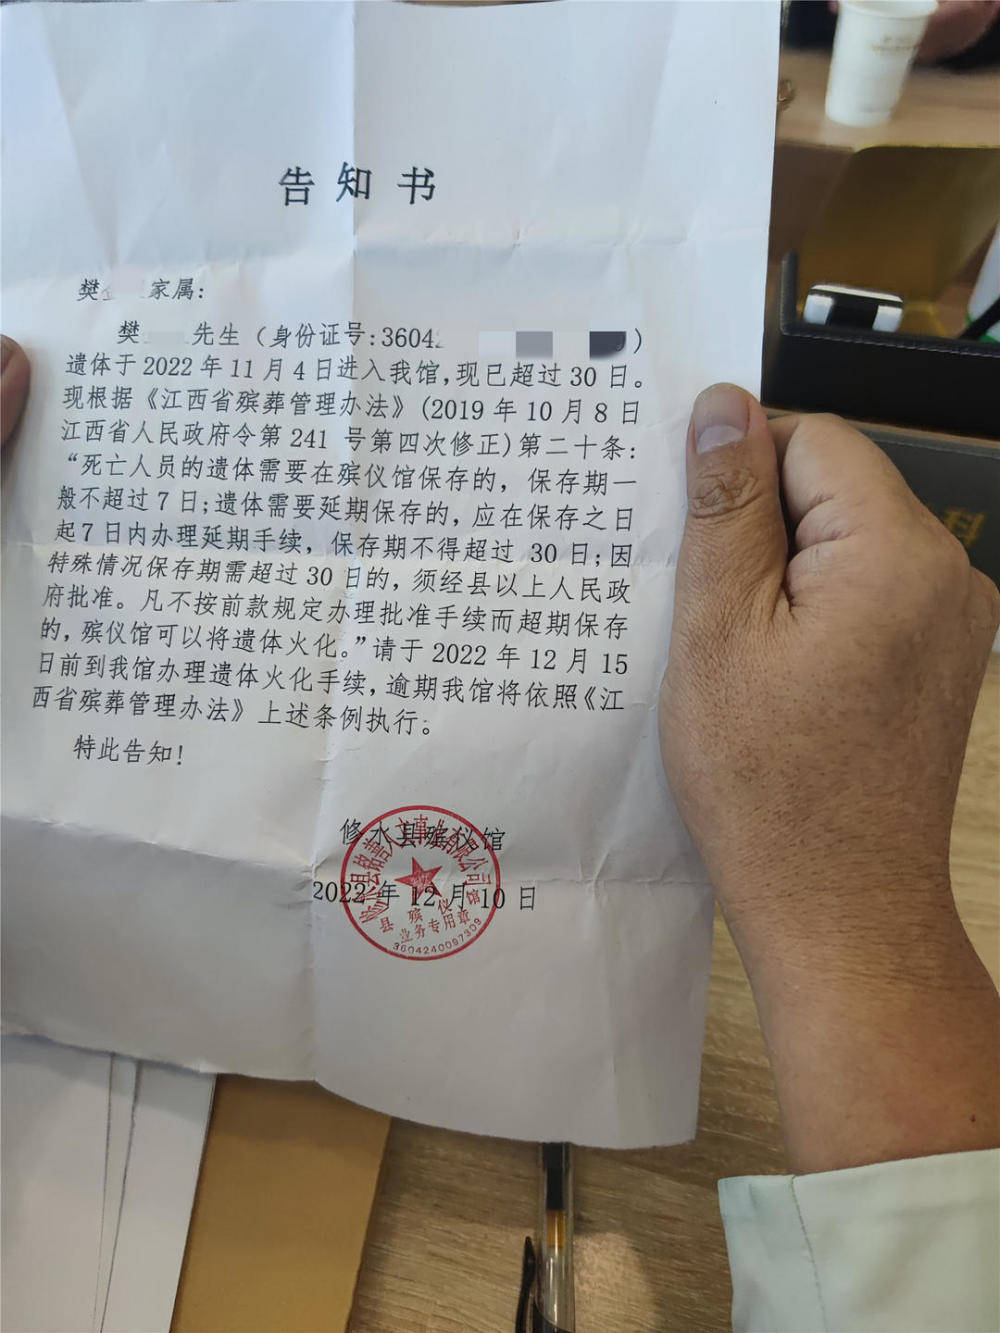 告知书
樊 家属：
樊 先生（身份证号:3604 ）
遗体于2022年11月4日进入我馆,现已超过30日。
现根据《江西省殡葬管理办法》(2019年10月8日
江西省人民政府令第241 号第四次修正)第二十条：
“死亡人员的遗体需要在殡仪馆保存的，保存期一
般不超过7日;遗体需要延期保存的，应在保存之日
起7日内办理延期手续，保存期不得超过 30日;因
特殊情况保存期需超过30日的，须经县以上人民政
府批准。凡不按前款规定办理批准手续而超期保存
的，殡仪馆可以将遗体火化。”请于2022年12月15
日前到我馆办理遗体火化手续，逾期我馆将依照《江
西省殡葬管理办法》上述条例执行。
特此告知！
修水县殡仪馆
2022年12月10日
县殡仪馆
业务专用章
3604240097309